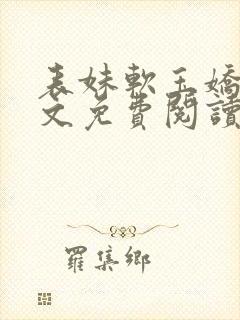 表妹軟玉嬌
文免費閱讀
羅集鄉